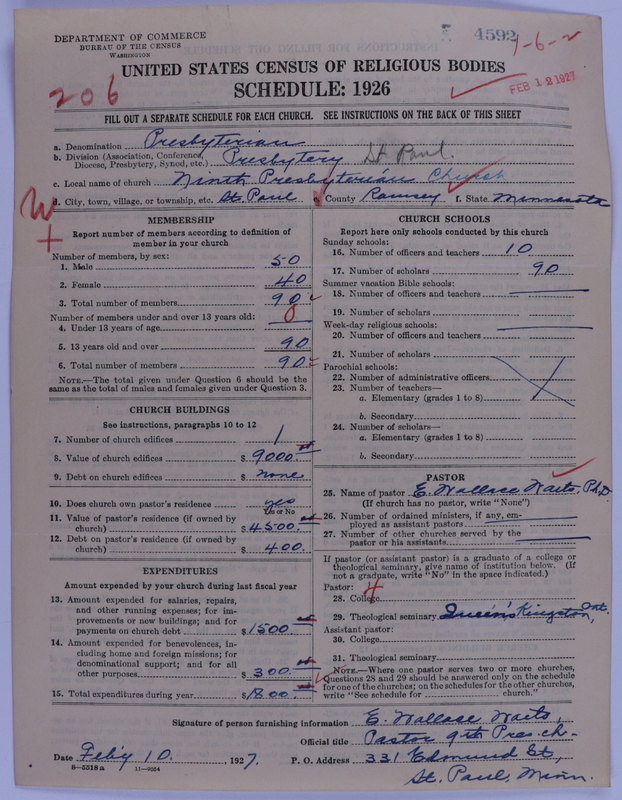 DEPARTMENT OF COMMERCE
BUREAU OF THE CENSUS
WASHINGTON
4592
1-6-2
206
UNITED STATES CENSUS OF RELIGIOUS BODIES
SCHEDULE: 1926
FEB 12 1927
FILL OUT A SEPARATE SCHEDULE FOR EACH CHURCH. SEE INSTRUCTIONS ON THE BACK OF THIS SHEET
a. Denomination Presbyterian
b. Division (Association, Conference, Diocese, Presbytery, Synod, etc.) Presbytery St Paul.
c. Local name of church Ninth Presbyterian Church
d. City, town, village, or township, etc. St. Paul e. County Ramsey f. State Minnesota
MEMBERSHIP
Report number of members according to definition of
member in your church
Number of members, by sex:
1. Male 50
2. Female 40
3. Total number of members 90
Number of members under and over 13 years old:
4. Under 13 years of age
5. 13 years old and over 90
6. Total number of members 90
NOTE.—The total given under Question 6 should be
the same as the total of males and females given under Question 3.
CHURCH BUILDINGS
See instructions, paragraphs 10 to 12
7. Number of church edifices 1
8. Value of church edifices $ 9000.
9. Debt on church edifices $ none
10. Does church own pastor's residence yes
Yes or No
11. Value of pastor's residence (if owned by
church) $ 4500.
12. Debt on pastor's residence (if owned by
church) $ 400.
EXPENDITURES
Amount expended by your church during last fiscal year
13. Amount expended for salaries, repairs,
and other running expenses; for im-
provements or new buildings; and for
payments on church debt $ 1500.
14. Amount expended for benevolences, in-
cluding home and foreign missions; for
denominational support; and for all
other purposes $ 300.
15. Total expenditures during year $ 1800.
CHURCH SCHOOLS
Report here only schools conducted by this church
Sunday schools:
16. Number of officers and teachers 10
17. Number of scholars 90
Summer vacation Bible schools:
18. Number of officers and teachers
19. Number of scholars
Week-day religious schools:
20. Number of officers and teachers
21. Number of scholars
Parochial schools:
22. Number of administrative officers
23. Number of teachers—
a. Elementary (grades 1 to 8)
b. Secondary
24. Number of scholars—
a. Elementary (grades 1 to 8)
b. Secondary
PASTOR
25. Name of pastor E. Wallace Waits, Ph.D
(If church has no pastor, write "None")
26. Number of ordained ministers, if any, em-
ployed as assistant pastors
27. Number of other churches served by the
pastor or his assistants
If pastor (or assistant pastor) is a graduate of a college or
theological seminary, give name of institution below. (If
not a graduate, write "No" in the space indicated.)
Pastor:
28. College
29. Theological seminary Queen's Kingston, Ont.
Assistant pastor:
30. College
31. Theological seminary
NOTE.—Where one pastor serves two or more churches,
Questions 28 and 29 should be answered only on the schedule
for one of the churches; on the schedules for the other churches,
write "See schedule for church."
Signature of person furnishing information E. Wallace Waits,
Official title Pastor 9th Pres. ch.
Date Feb'y 10. 1927. P. O. Address 331 Edmund St,
8—5518a 11—9024
St. Paul, Minn.